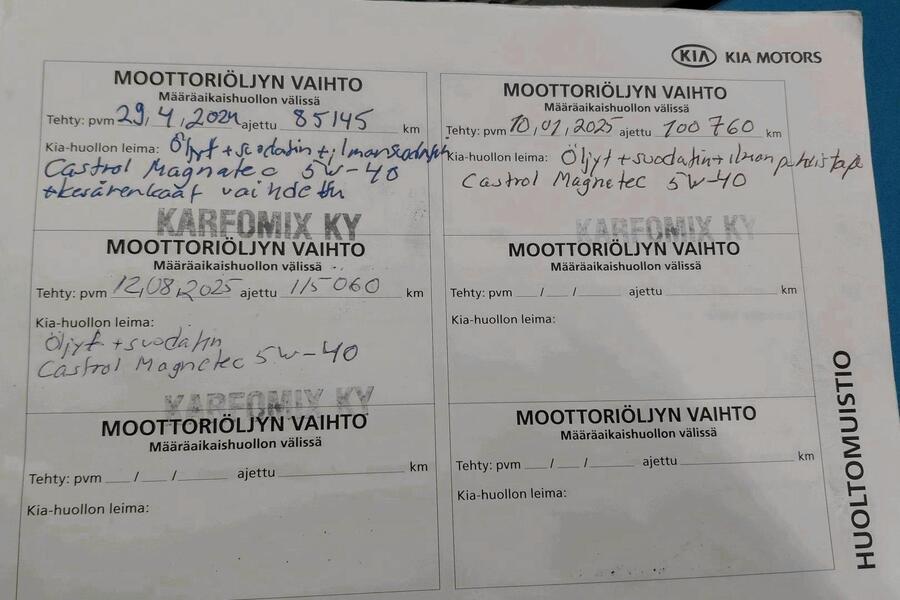 KIA KIA MOTORS
MOOTTORIÖLJYN VAIHTO
Määräaikaishuollon välissä
Tehty: pvm 29,4,2024 ajettu 85145 km
Kia-huollon leima: Öljyt +suodatin +ilmansuodatin
Castrol Magnatec 5W-40
+kesärenkaat vaihdettu
KARFOMIX KY
MOOTTORIÖLJYN VAIHTO
Määräaikaishuollon välissä
Tehty: pvm 10,01,2025 ajettu 100760 km
Kia-huollon leima: Öljyt +suodatin+ilman puhdistaja
Castrol Magnetec 5W-40
KARFOMIX KY
MOOTTORIÖLJYN VAIHTO
Määräaikaishuollon välissä
Tehty: pvm 12,08,2025 ajettu 115060 km
Kia-huollon leima:
Öljyt +suodatin
Castrol Magnetec 5W-40
KARFOMIX KY
MOOTTORIÖLJYN VAIHTO
Määräaikaishuollon välissä
Tehty: pvm __/__/____ ajettu ____ km
Kia-huollon leima:
MOOTTORIÖLJYN VAIHTO
Määräaikaishuollon välissä
Tehty: pvm __/__/____ ajettu ____ km
Kia-huollon leima:
MOOTTORIÖLJYN VAIHTO
Määräaikaishuollon välissä
Tehty: pvm __/__/____ ajettu ____ km
Kia-huollon leima:
HUOLTOMUISTIO